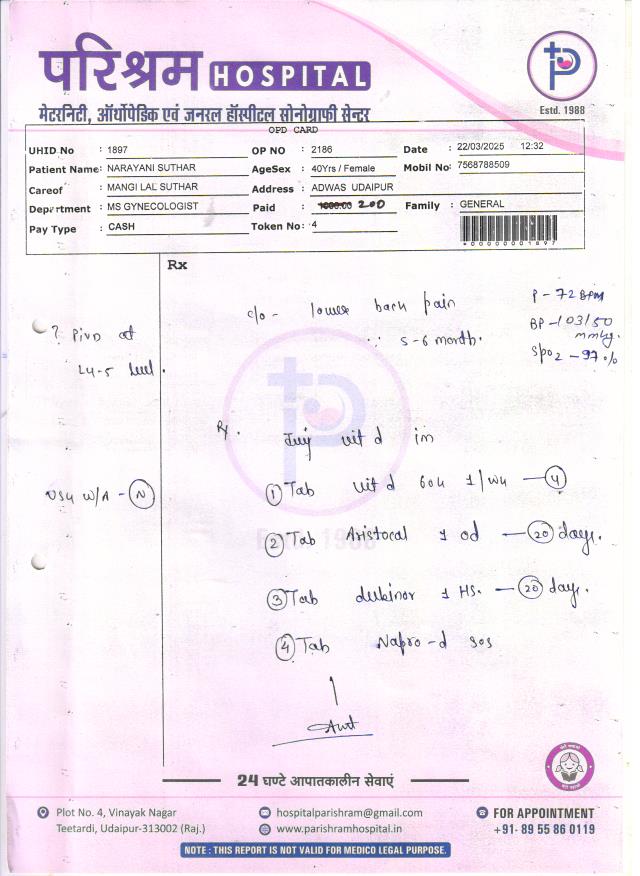 परिश्रम HOSPITAL
मेटरनिटी, ऑर्थोपेडिक एवं जनरल हॉस्पीटल सोनोग्राफी सेन्टर
Estd. 1988
OPD CARD
UHID No : 1897 OP NO : 2186 Date : 22/03/2025 12:32
Patient Name : NARAYANI SUTHAR AgeSex : 40Yrs / Female Mobil No : 7568788509
Careof : MANGI LAL SUTHAR Address : ADWAS UDAIPUR
Department : MS GYNECOLOGIST Paid : 1000.00 200 Family : GENERAL
Pay Type : CASH Token No : 4
*000000001897
Rx
c/o - lower back pain
5-6 month.
P - 72 BPM
BP - 103/50
mmhg.
SpO2 - 97%
? PIVD at
L4-5 level.
USG W/A - N
Rx.
Inj vit d im
1 Tab vit d 60k 1/wk — 4
2 Tab Aristocal 1 od — 20 days.
3 Tab 1 HS. — 20 days.
4 Tab Napro-d sos
24 घण्टे आपातकालीन सेवाएं
Plot No. 4, Vinayak Nagar
Teetardi, Udaipur-313002 (Raj.)
hospitalparishram@gmail.com
www.parishramhospital.in
FOR APPOINTMENT
+91- 89 55 86 0119
NOTE : THIS REPORT IS NOT VALID FOR MEDICO LEGAL PURPOSE.